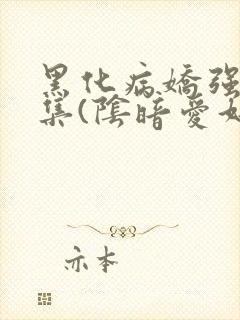 黑化病嬌强
集(陰暗愛
亦本